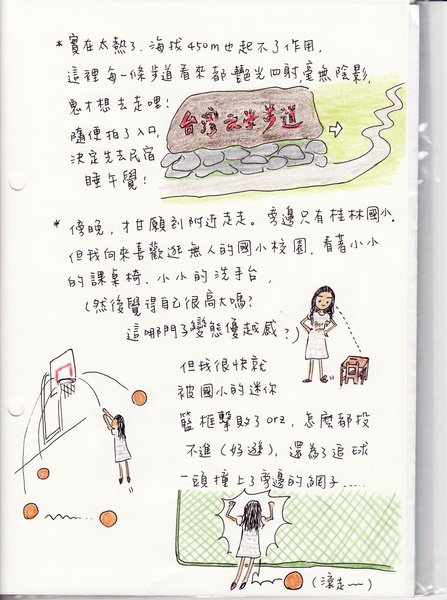 *實在太熱了、海拔450m也起不了作用，
這裡每一條步道看來都艷光四射,毫無陰影,
鬼才想去走哩!
隨便拍了入口,
決定先去民宿
睡午覺!
台灣文學步道
*傍晚，才甘願到附近走走。旁邊只有桂林國小.
但我向來喜歡逛無人的國小校園，看著小小
的課桌椅、小小的洗手台，
(然後覺得自己很高大嗎?
這哪門子變態優越感?)
但我很快就
被國小的迷你
籃框擊敗了orz，怎麼都投
不進(好遜)，還為了追球
一頭撞上了旁邊的網子.....
(滾走~~)